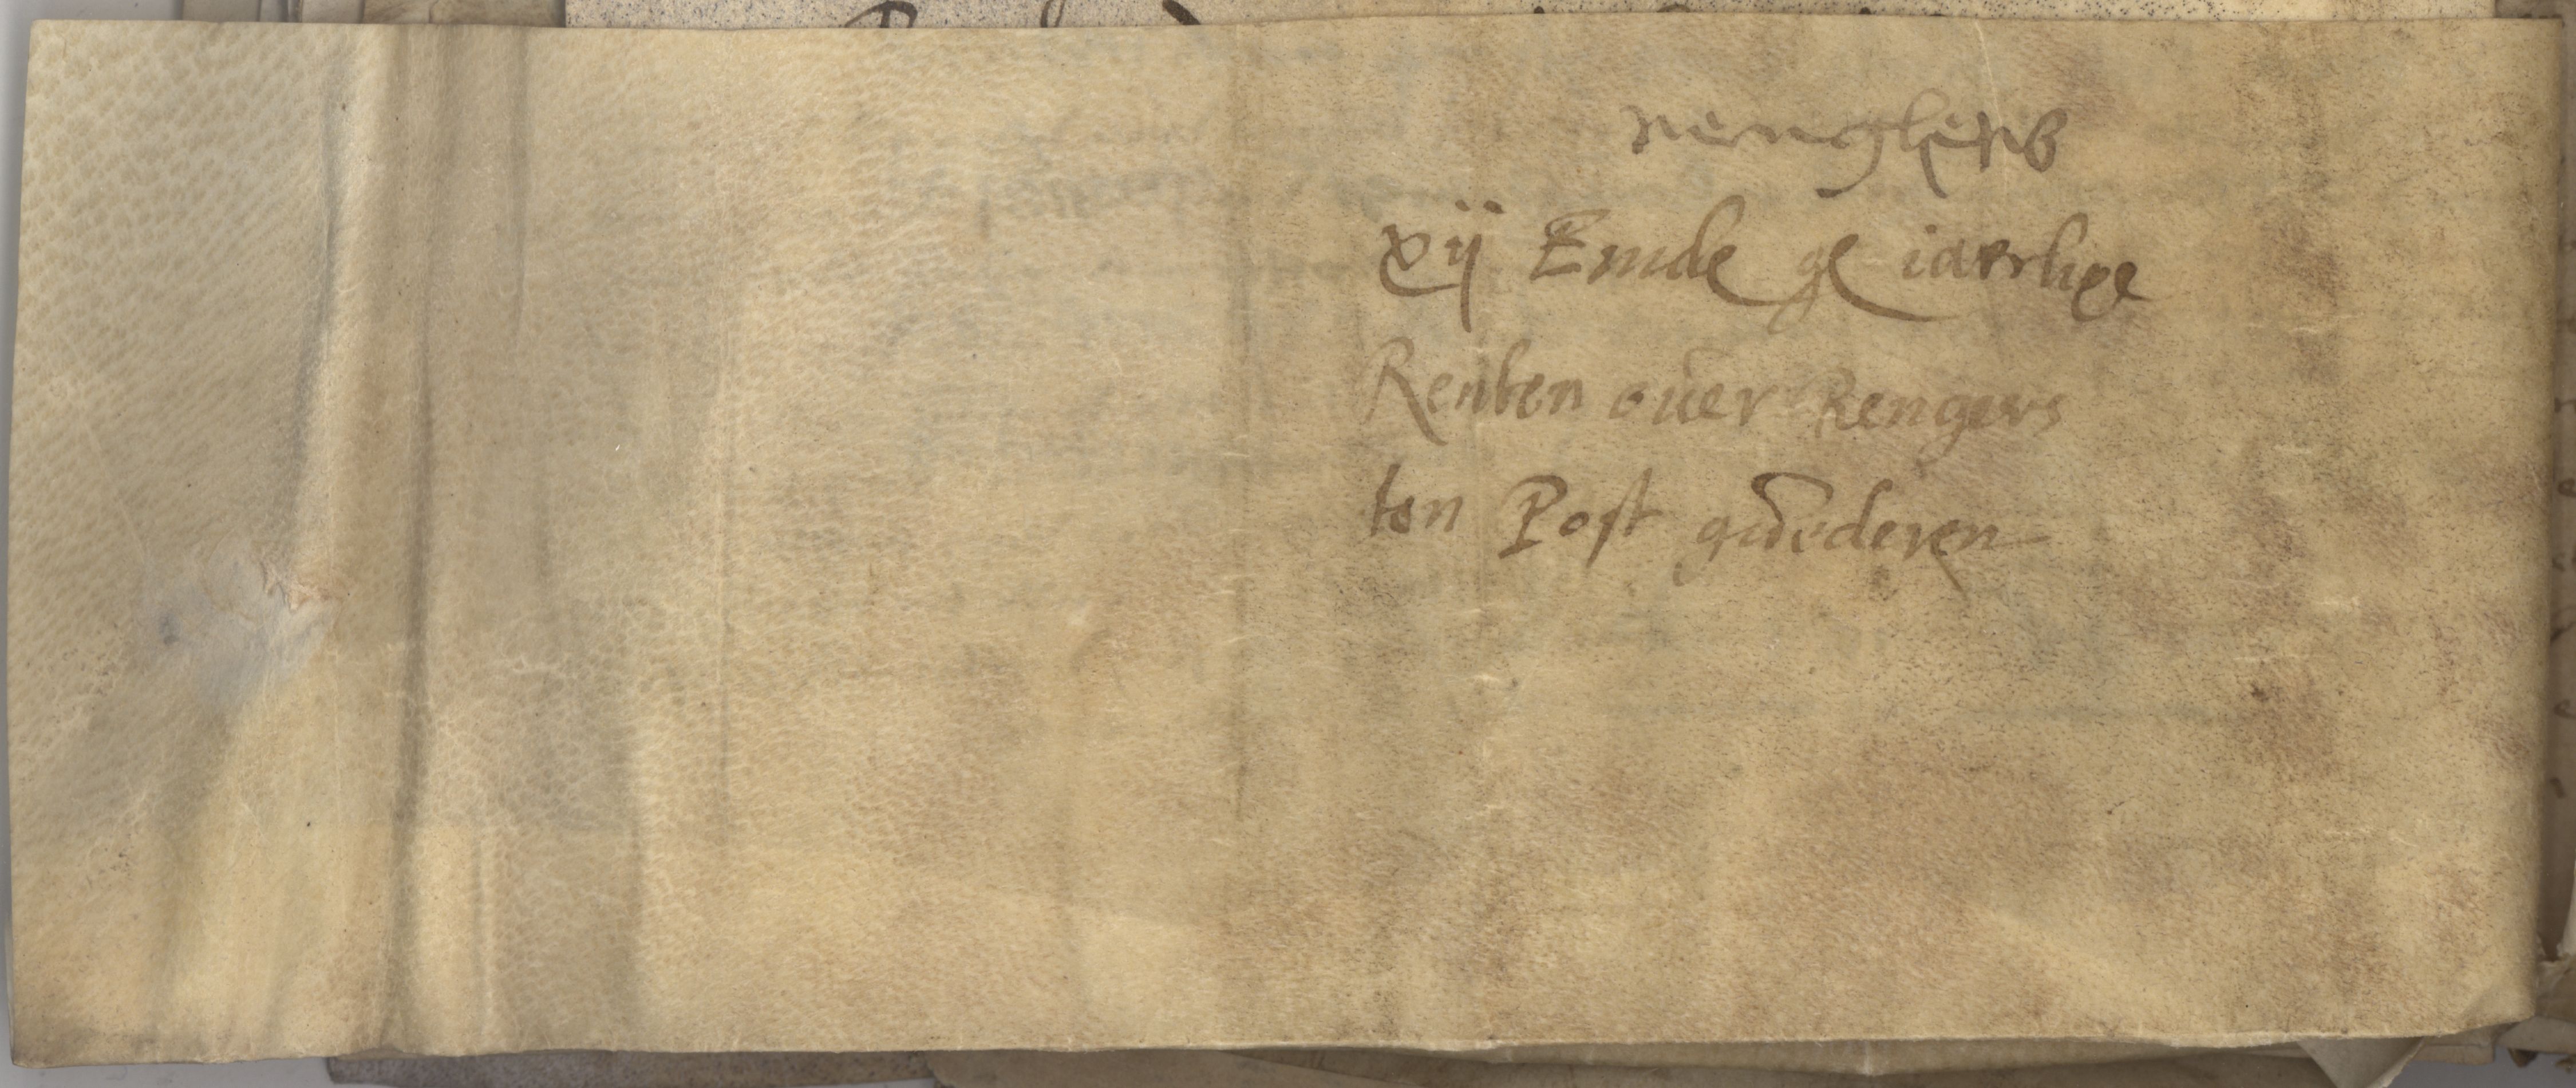 rengherß
xij Emde gl iaerlixe
Renten ouer Rengers
ten Post guederen